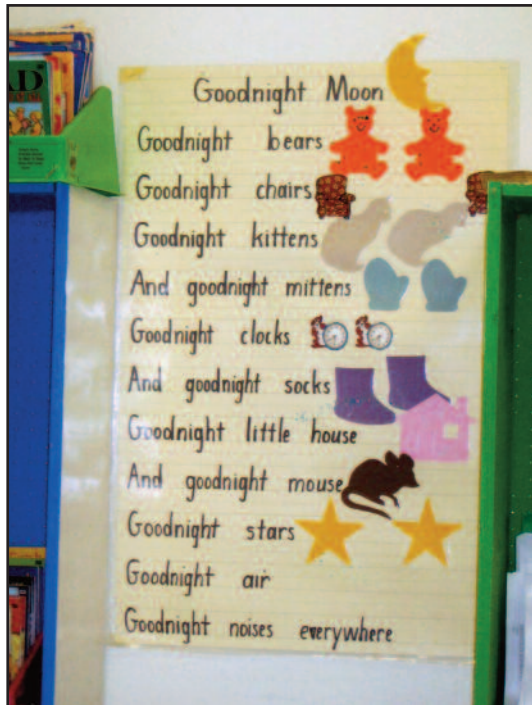 Goodnight Moon
Goodnight bears
Goodnight chairs
Goodnight kittens
And goodnight mittens
Goodnight clocks
And goodnight socks
Goodnight little house
And goodnight mouse
Goodnight stars
Goodnight air
Goodnight noises everywhere